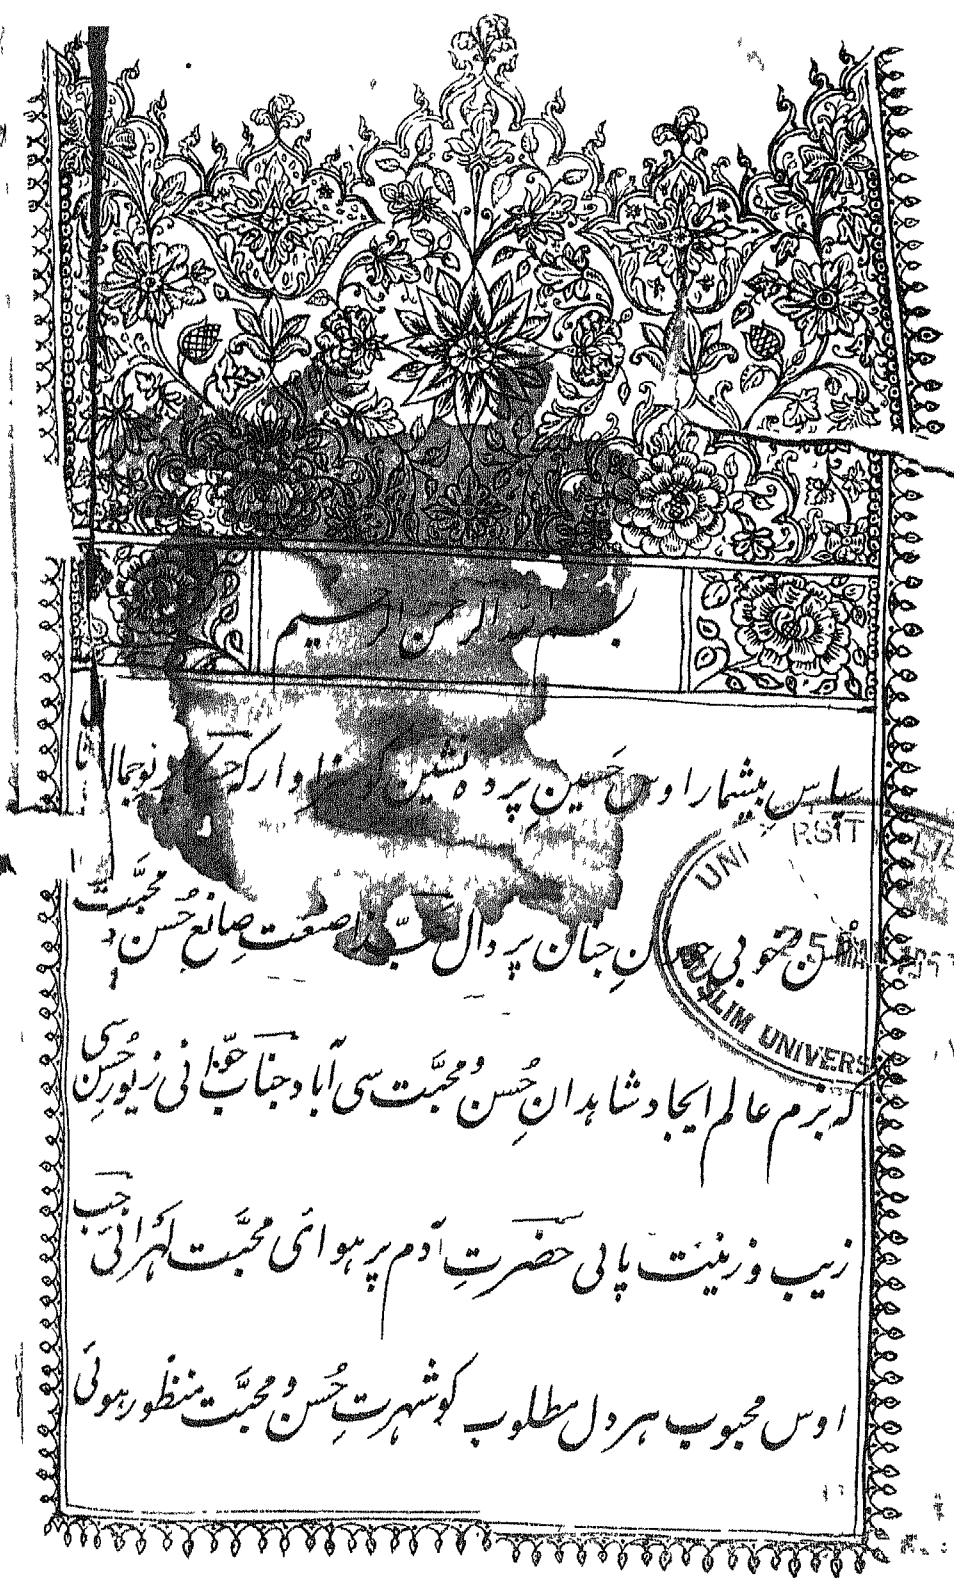 بسم الله الرحمن الرحيم
سپاس بیشمار اوس حَسینِ پردہ نشین کو سزاوار کہ جسکا نوجمال
خوبی جنان پر دال حَبّذا صنعتِ صانعِ حُسن و محبَّت
کہ بزم عالم ایجاد شاہدانِ حُسن و محبَّت سی آباد جناب حوّا نی زیورِ حُسن سی
زیب و زینت پائی حضرتِ آدم پر ہوای محبَّت لہرائی جب
اوس محبوب ہر دل مطلوب کو شہرتِ حُسن و محبَّت منظور ہوئی
MUSLIM UNIVERSI
25